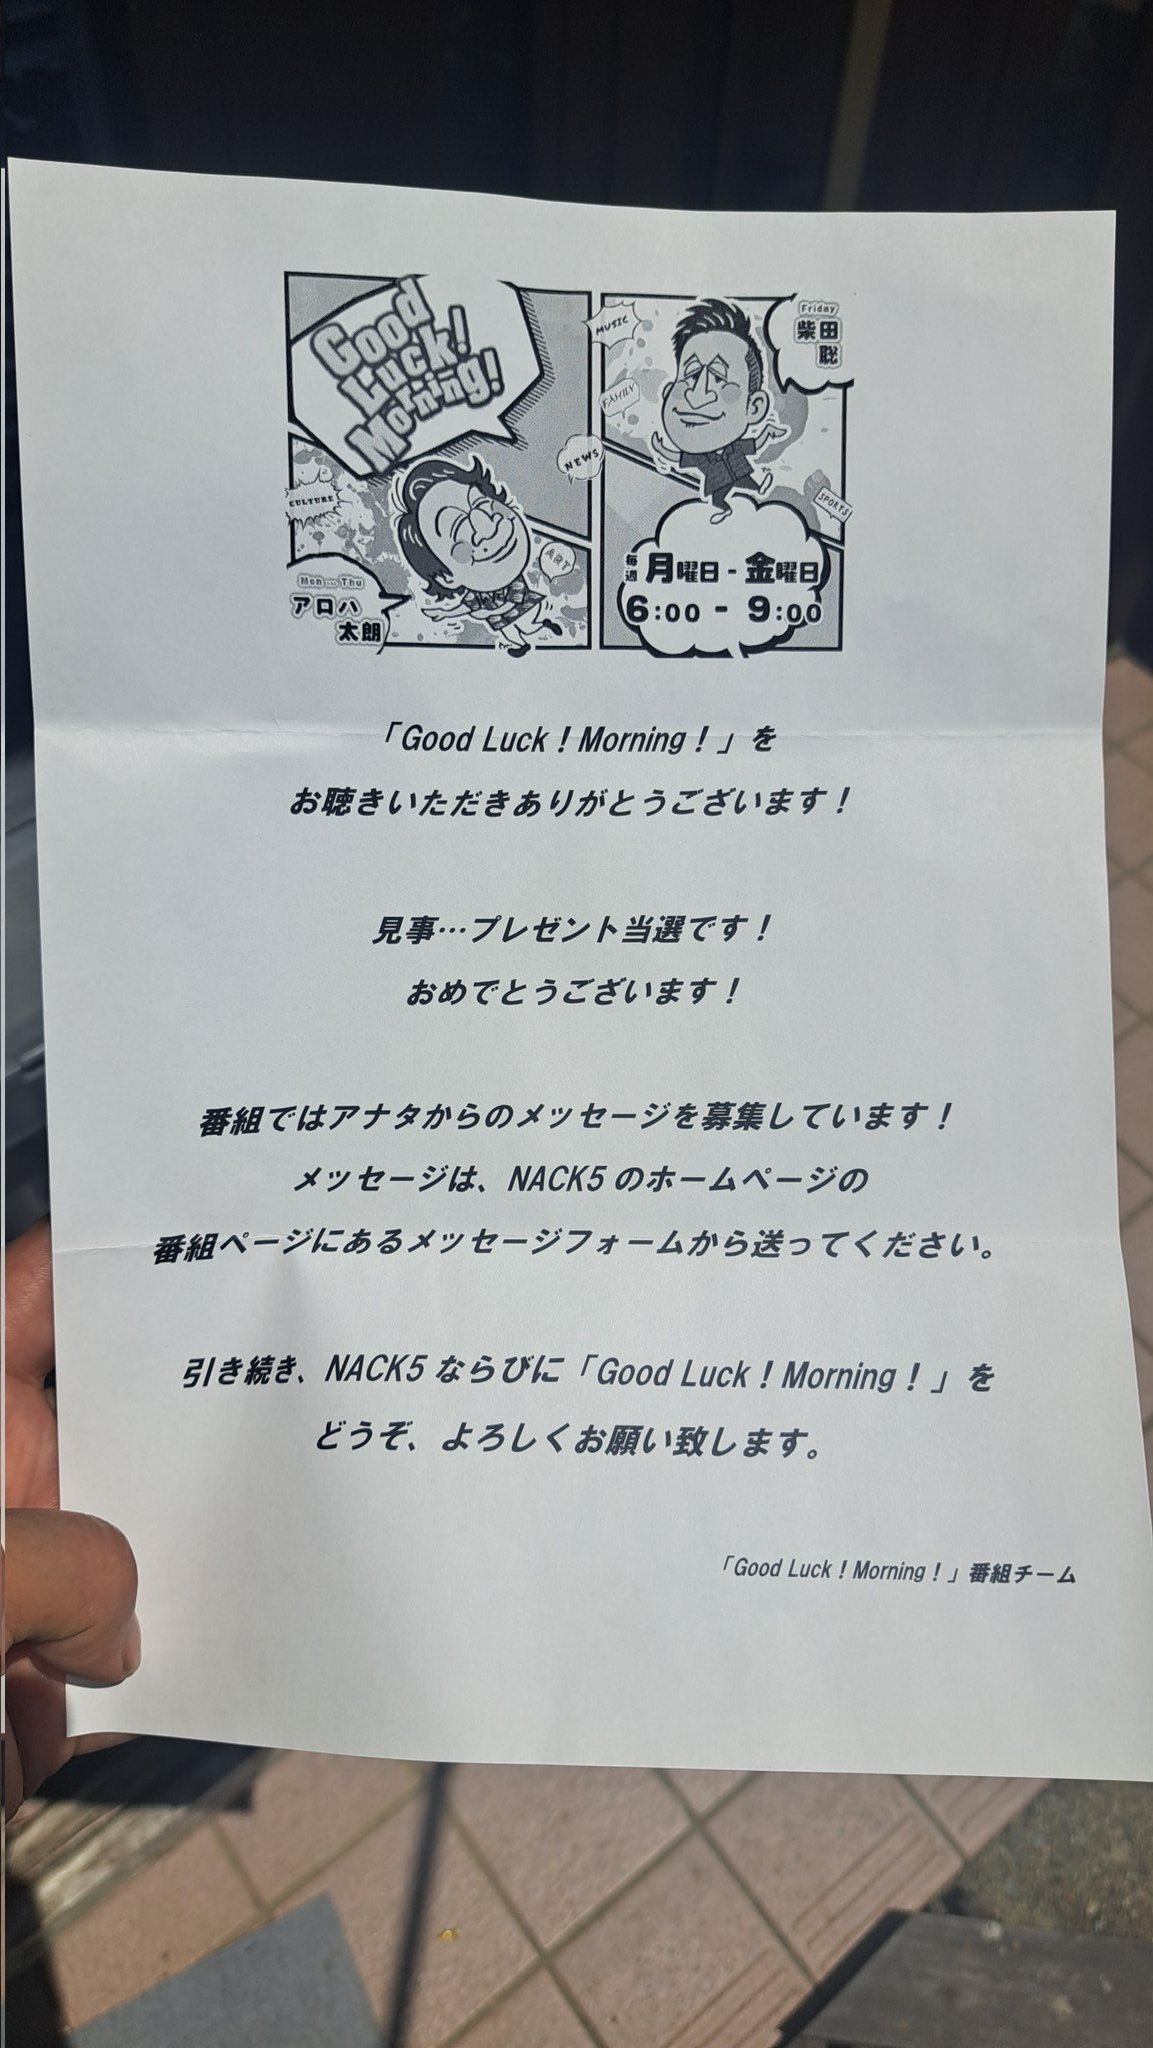 Good
Luck!
Morning!
CULTURE
Mon … Thu
アロハ
太朗
ART
NEWS
MUSIC
FAMILY
Friday
柴田
聡
SPORTS
毎週 月曜日 - 金曜日
6:00 - 9:00
「Good Luck!Morning!」を
お聴きいただきありがとうございます!
見事…プレゼント当選です!
おめでとうございます!
番組ではアナタからのメッセージを募集しています!
メッセージは、NACK5のホームページの
番組ページにあるメッセージフォームから送ってください。
引き続き、NACK5ならびに「Good Luck!Morning!」を
どうぞ、よろしくお願い致します。
「Good Luck!Morning!」番組チーム